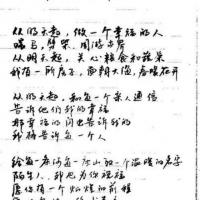 从明天起，做一个幸福的人
喂马，劈柴，周游世界
从明天起，关心粮食和蔬菜
我有一所房子，面朝大海，春暖花开
从明天起，和每一个亲人通信
告诉他们我的幸福
那幸福的闪电告诉我的
我将告诉每一个人
给每一条河每一座山取一个温暖的名字
陌生人，我也为你祝福
愿你有一个灿烂的前程